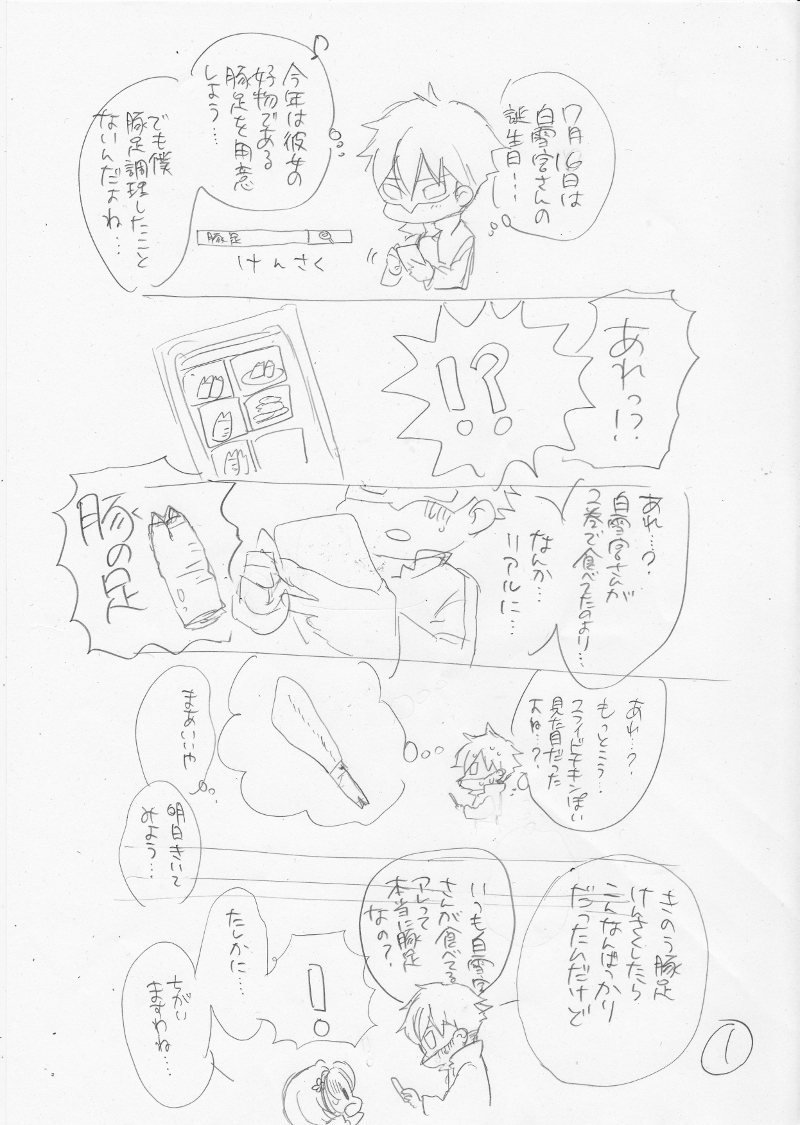 7月16日は
白雪宮さんの
誕生日…
今年は彼女の
好物である
豚足を用意
しよう…
でも僕
豚足調理したこと
ないんだよね…
豚足
けんさく
あれっ!?
!?
あれ…?
白雪宮さんが
2巻で食べてたのより…
なんか…
リアルに…
豚の足
あれ…?
もっとこう…
フライドチキンぽい
見た目だった
よね…?
まあいいや
明日きいて
みよう…
きのう豚足
けんさくしたら
こんなんばっかり
だったんだけど
いつも白雪宮
さんが食べてる
アレって
本当に豚足
なの?
!
たしかに…
ちがい
ますわね…
1